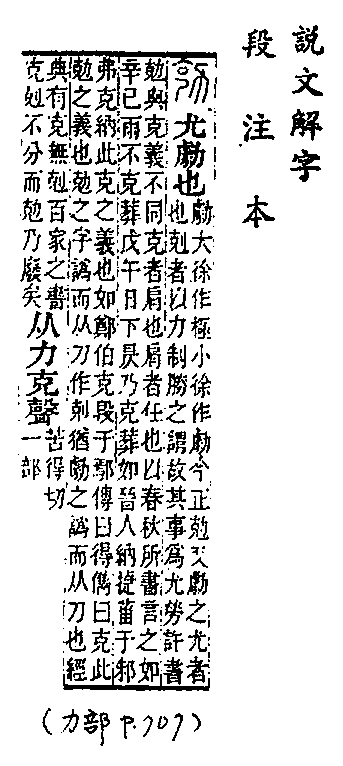 說文解字
段注本
尤勮也
勮大徐作極小徐作劇今正勊又勮之尤者
也剋者以力制勝之謂故其事爲尤勞許書
勊與克義不同克者肩也肩者任也以春秋所書言之如
辛巳雨不克葬戊午日下昃乃克葬如晉人納捷菑于邾
弗克納此克之義也如鄭伯克段于鄢傳曰得儁曰克此
勊之義也勊之字譌而从刀作剋猶勮之譌而从刀也經
典有克無剋百家之書
克剋不分而勊乃廢矣
从力克聲
苦得切
一部
(力部 P.707)